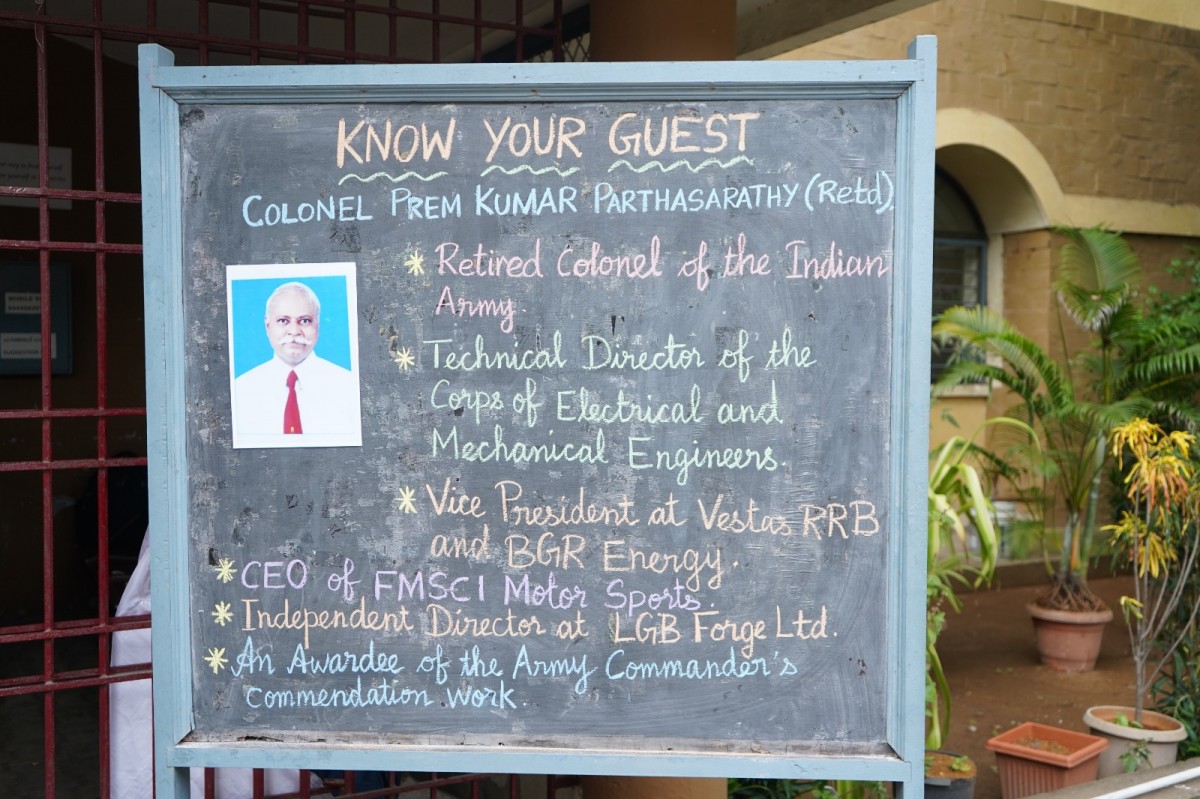 KNOW YOUR GUEST
COLONEL PREM KUMAR PARTHASARATHY (Retd)
* Retired Colonel of the Indian
Army.
* Technical Director of the
Corps of Electrical and
Mechanical Engineers.
* Vice President at Vestas RRB
and BGR Energy.
* CEO of FMSCI Motor Sports
* Independent Director at LGB Forge Ltd.
* An Awardee of the Army Commander's
commendation work.